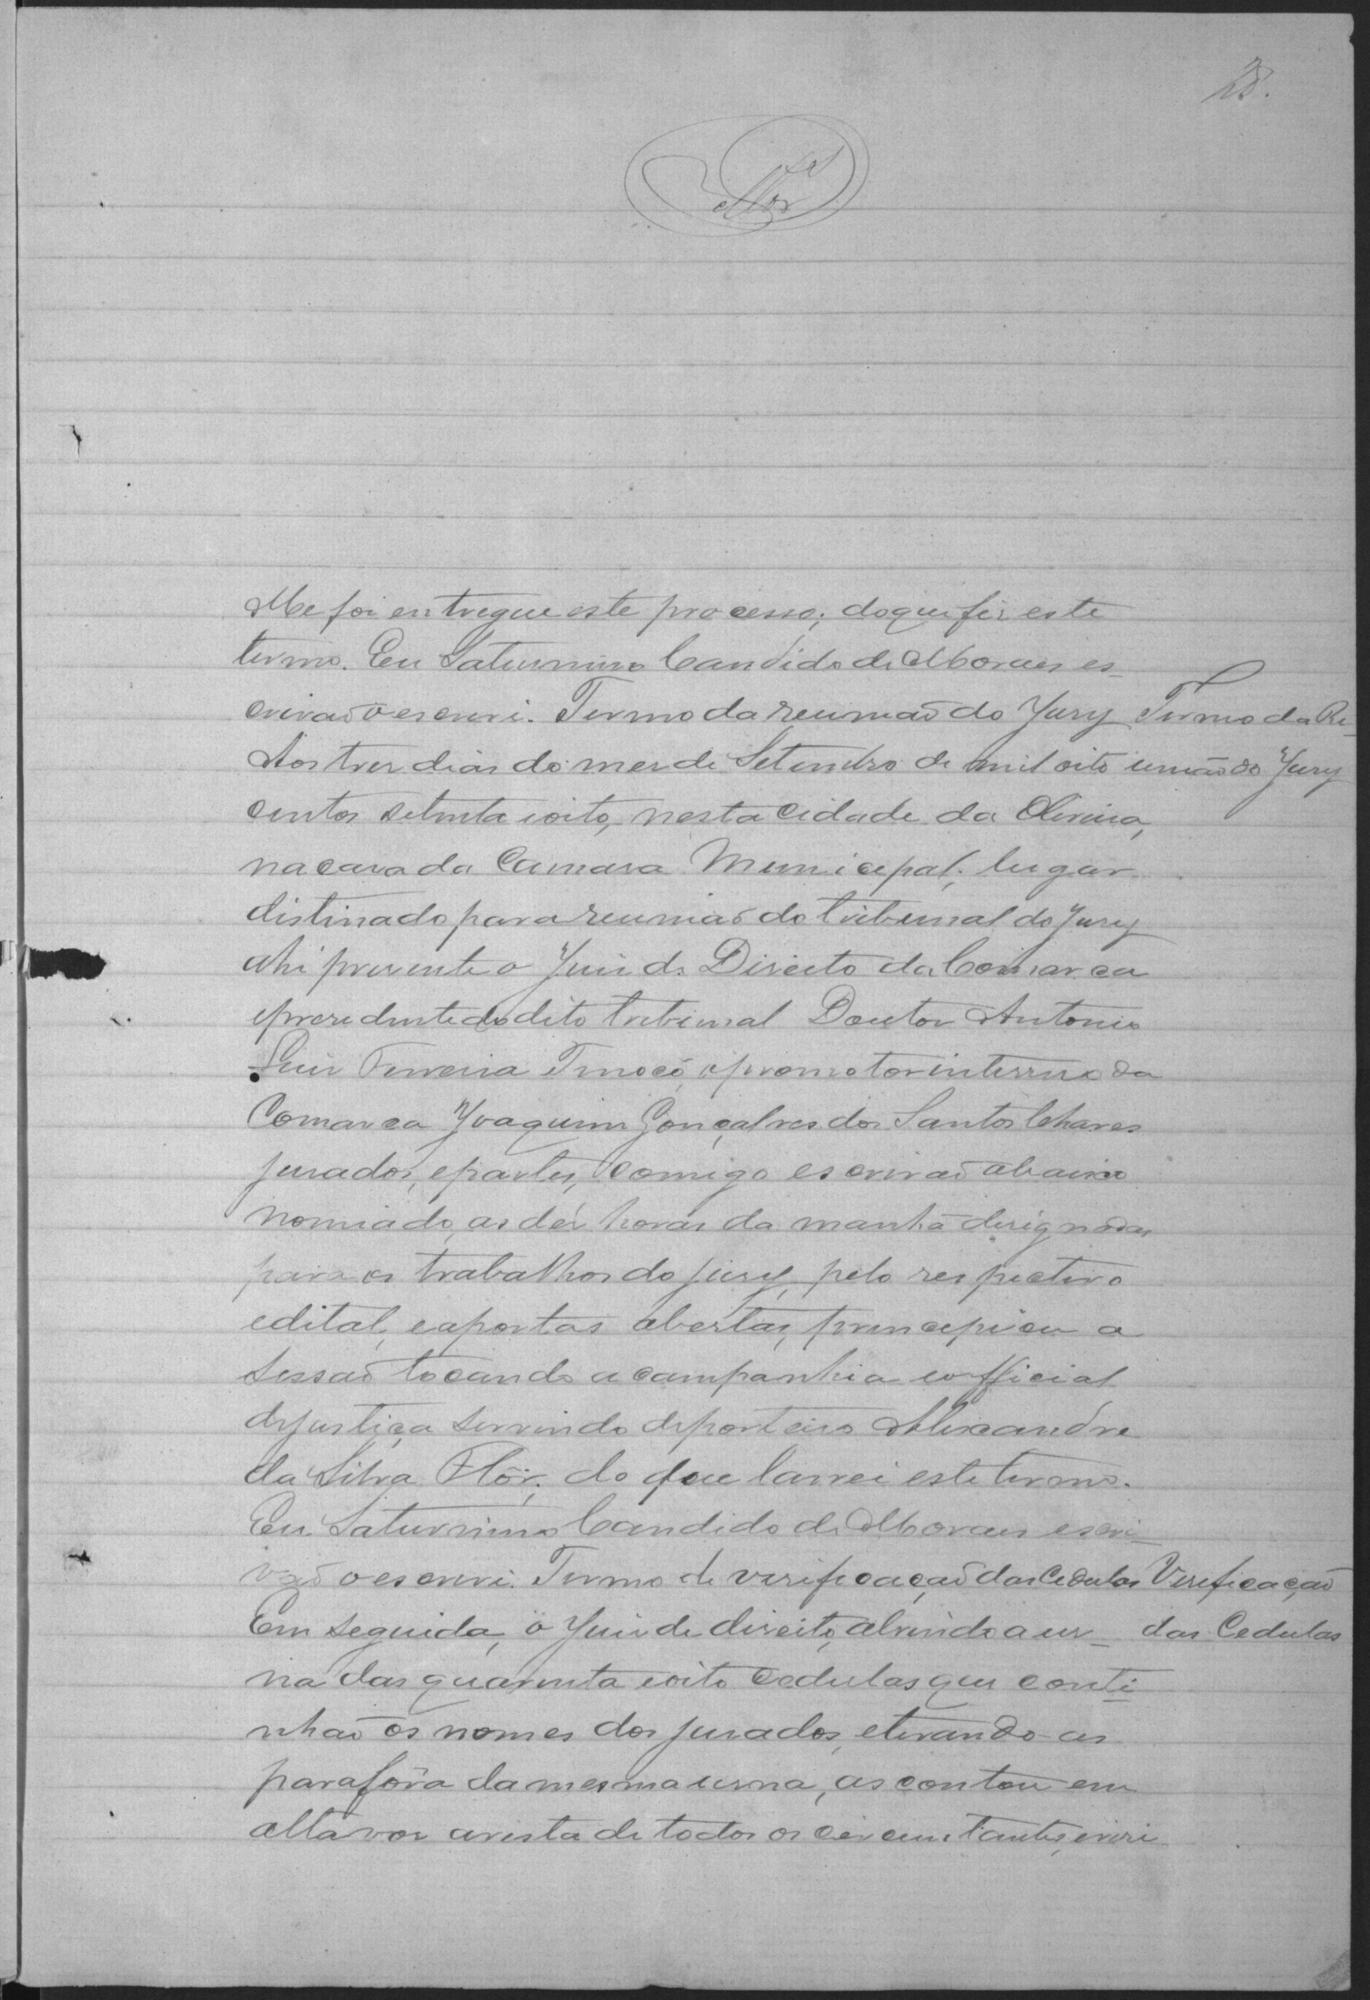 28.
Me foi entregue este processo; do que fiz este
termo. Eu Saturnino Candido de Moraes es-
crivaõ o escrevi. Termo da reuniaõ do Jury
Termo da Re-
uniaõ do Jury
Aos tres dias do mes de Setembro de mil oito
centos setenta e oito, nesta Cidade da Oliveira,
na casa da Camara Municipal, lugar
distinado para reuniaõ do tribunal do Jury
ahi presente o Juiz de Direito da Comarca
e presidente do dito tribunal Doutor Antonio
Luiz Ferreira Tinocó, o promotor interino da
Comarca Joaquim Gonçalves dos Santos Chaves
jurados, e partes, comigo escrivaõ abaixo
nomiado, as déz horas da manhã designadas
para os trabalhos do jury, pelo respectivo
edital, e aportas abertas, principiou a
Sessaõ tocando a campanhia o official
de justiça servindo de porteiro Alexandre
da Silva Flôr, do que lavrei este termo.
Eu Saturnino Candido de Moraes escri-
vaõ o escrevi. Termo de verificaçaõ das Cedulas
Verificaçaõ
das Cedulas
Em seguida, o Juiz de direito, abrindo a ur-
na das quarenta e oito cedulas que conti-
nhaõ os nomes dos jurados, e tirando-as
para fóra da mesma urna, as contou em
alta voz avista de todos os circunstantes, e veri